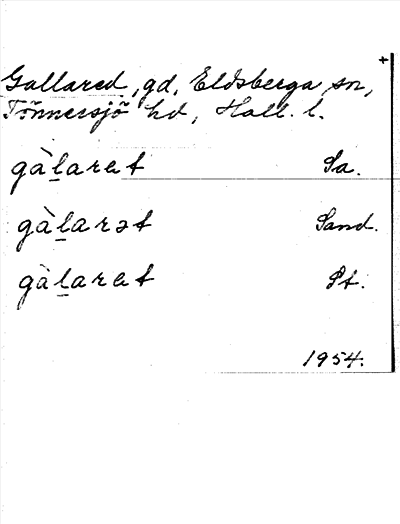 +
Gallared, gd, Eldsberga sn,
Tönnersjö hd, Hall. l.
gàḻarɐt Sa.
gàḻarət Sand.
gàḻarɐt St.
1954.